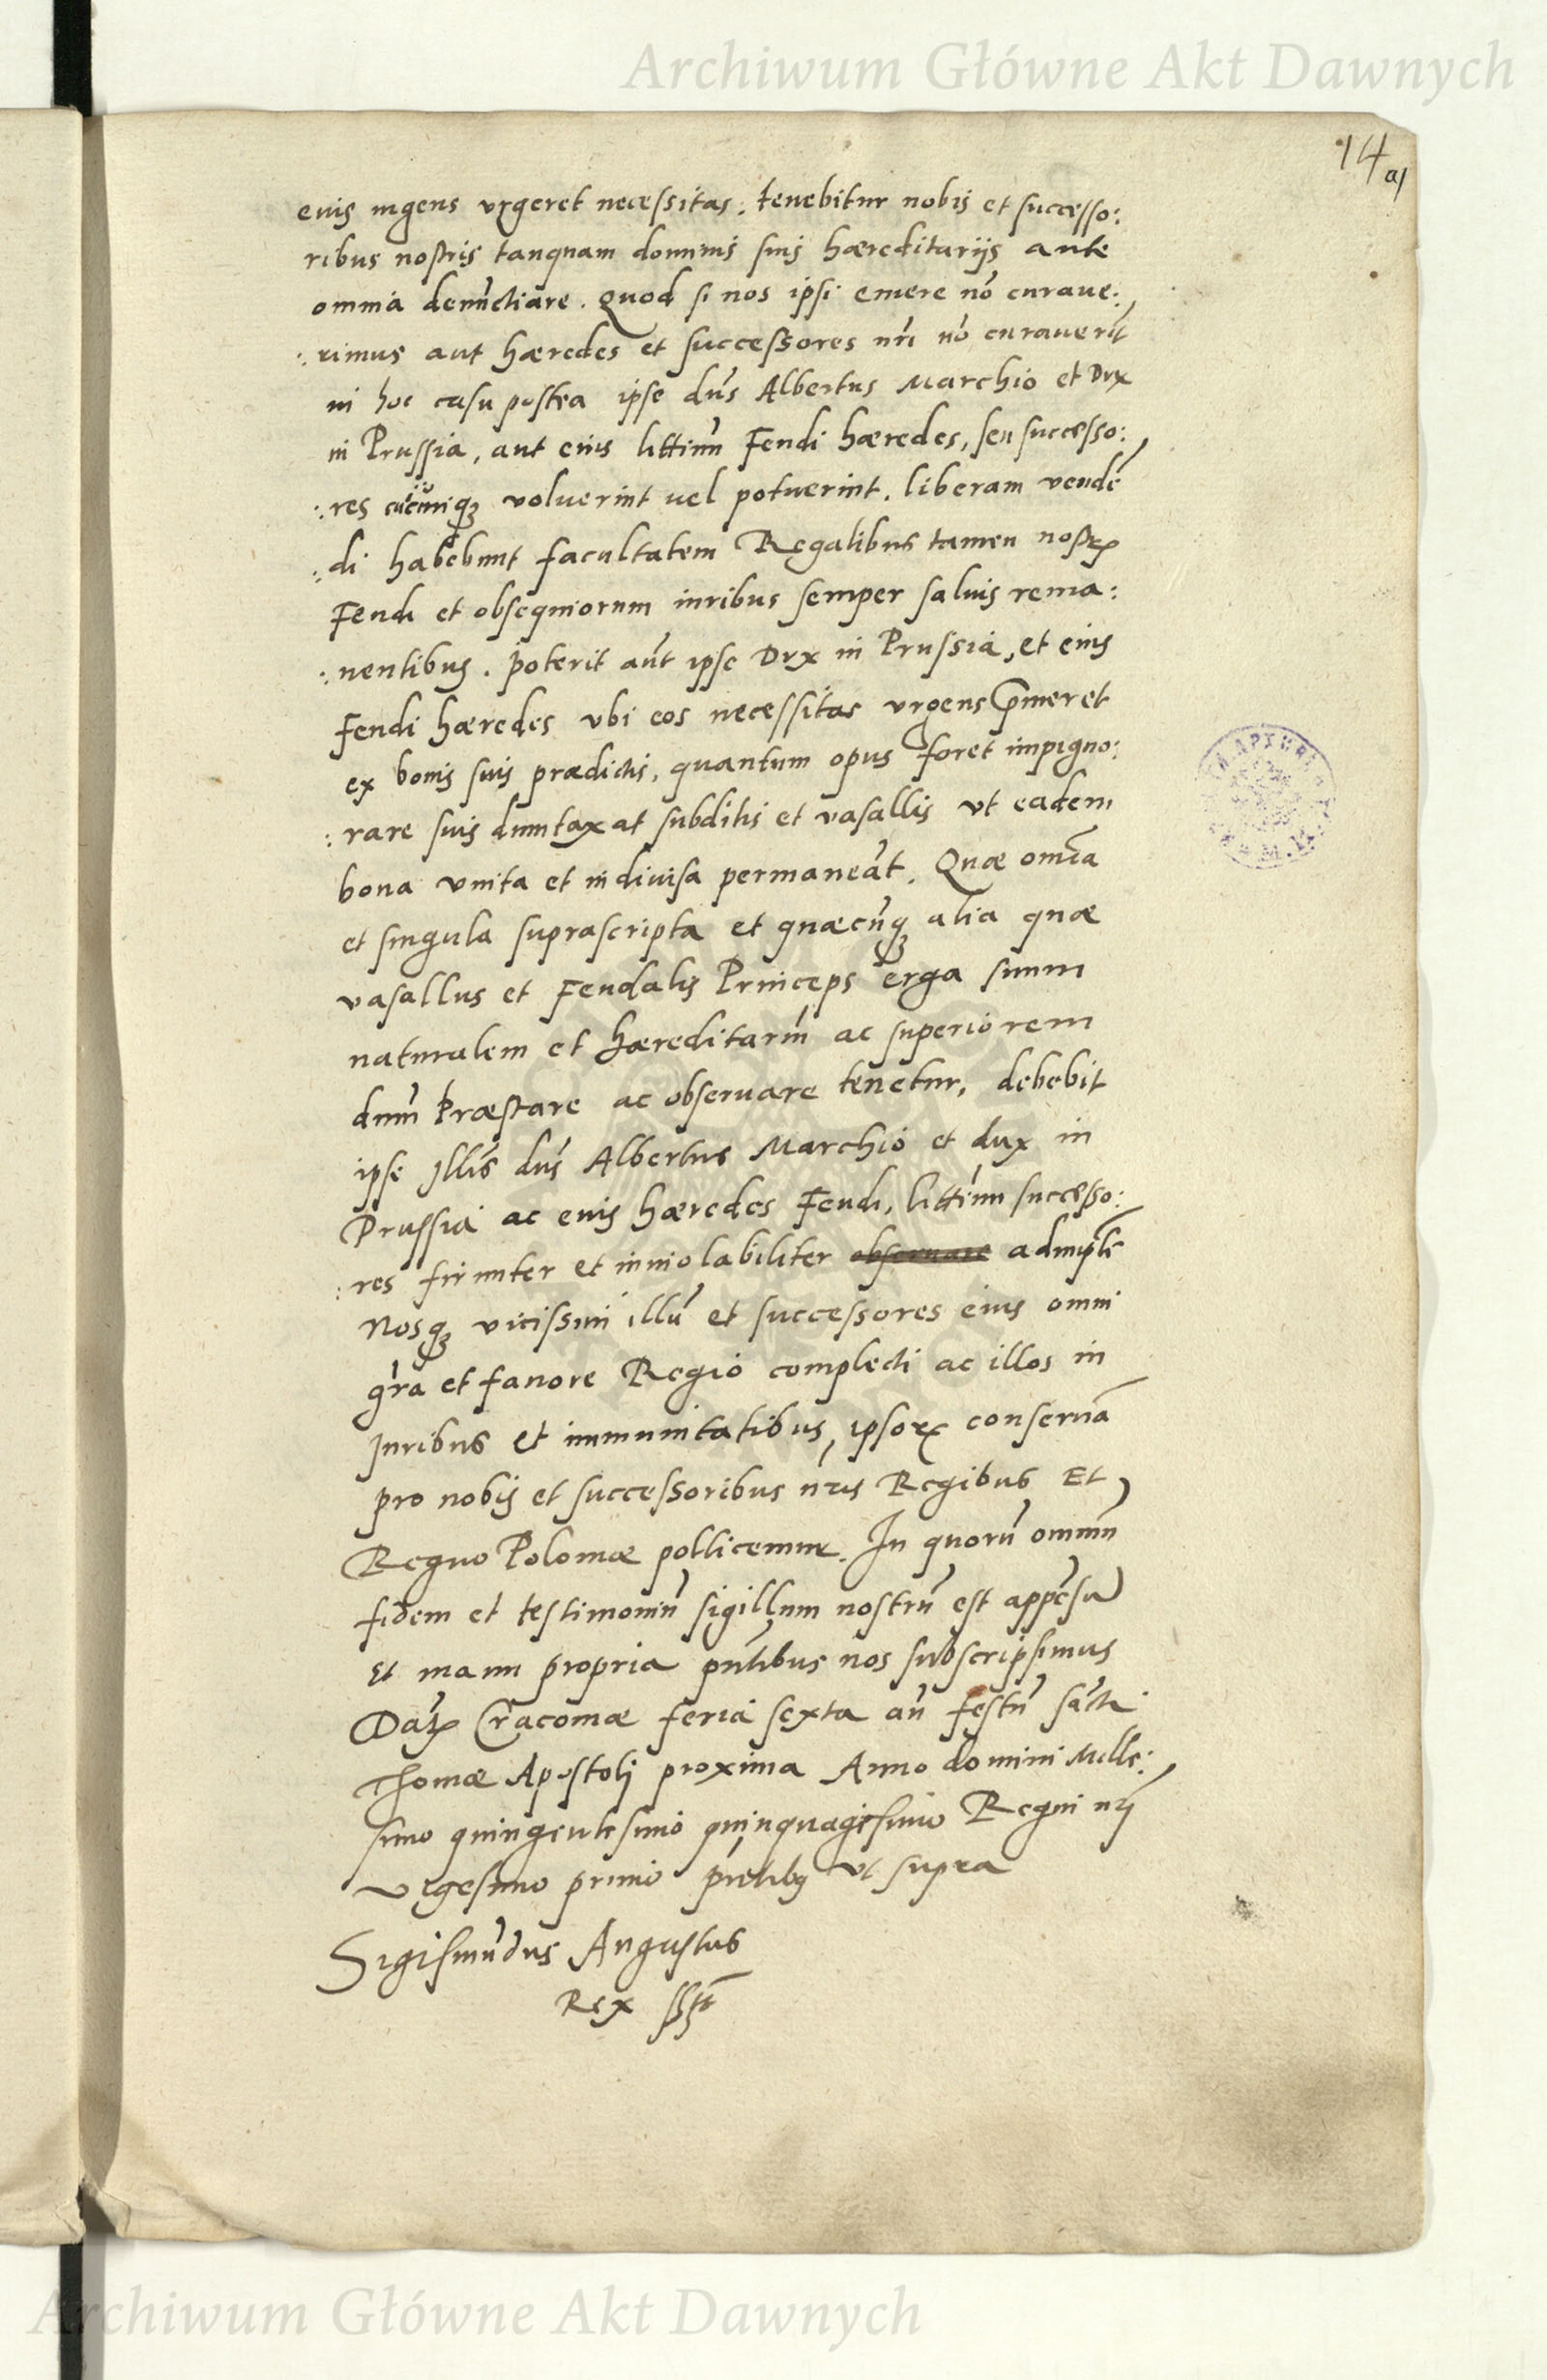 Archiwum Główne Akt Dawnych
14 a/
euis ingens vrgeret necessitas. tenebitur nobis et successo:
ribus nostris tanquam dominis suis hæreditarijs ante
omnia denũctiare. Quod si nos ipsi emere nõ curaue:
:rimus aut hæredes et successores nr̃i nõ curauerĩt
in hoc casu postea ipse dñs Albertus Marchio et Dux
in Prussia, aut eius littimi Feudi hæredes, seu successo:
:res cuicunq3 voluerint uel potuerint. liberam vendẽ
:di habebunt facultatem Regalibus tamen nostrꝝ
Feudi et obsequiorum iuribus semper saluis rema:
:nentibus. poterit aũt ipse Dux in Prussia, et eius
Feudi hæredes vbi eos necessitas vrgens p̃meret
ex bonis suis prædictis, quantum opus foret impigno:
:rare suis dumtaxat subditis et vasallis vt eadem
bona vnita et indiuisa permaneãt. Quæ om̃ia
et singula suprascripta et quæcũq3 alia quæ
vasallus et Feudalis Princeps erga suum
naturalem et hæreditariũ ac superiorem
dnũm præstare ac obseruare tenetur, debebit
ipse Illr̃is dñs Albertus Marchio et dux in
Prussia ac euis hæredes Feudi, littimi successo:
:res firmiter et inuiolabiliter obseruare adimplẽ
Nosq3 vicissim illũ et successores eius omni
gr̃a et fauore Regio complecti ac illos in
Iuribus et immunitatibus, ipsoꝝ conseruã
pro nobis et successoribus nr̃is Regibus Et
Regno Poloniæ pollicemur. In quorũ omniũ
fidem et testimoniũ sigillum nostrũ est appẽsũ
Et manu propria pñtibus nos subscripsimus
Datꝝ Cracoviæ feria sexta añ festũ sãcti
Thomæ Apostolj proxima Anno domini Mille:
simo quingentesimo quinquagesimo Regni nr̃j
vigesimo primo p̃ntibus vt supra
Sigismũdus Augustus
Rex sst
Archiwum Główne Akt Dawnych